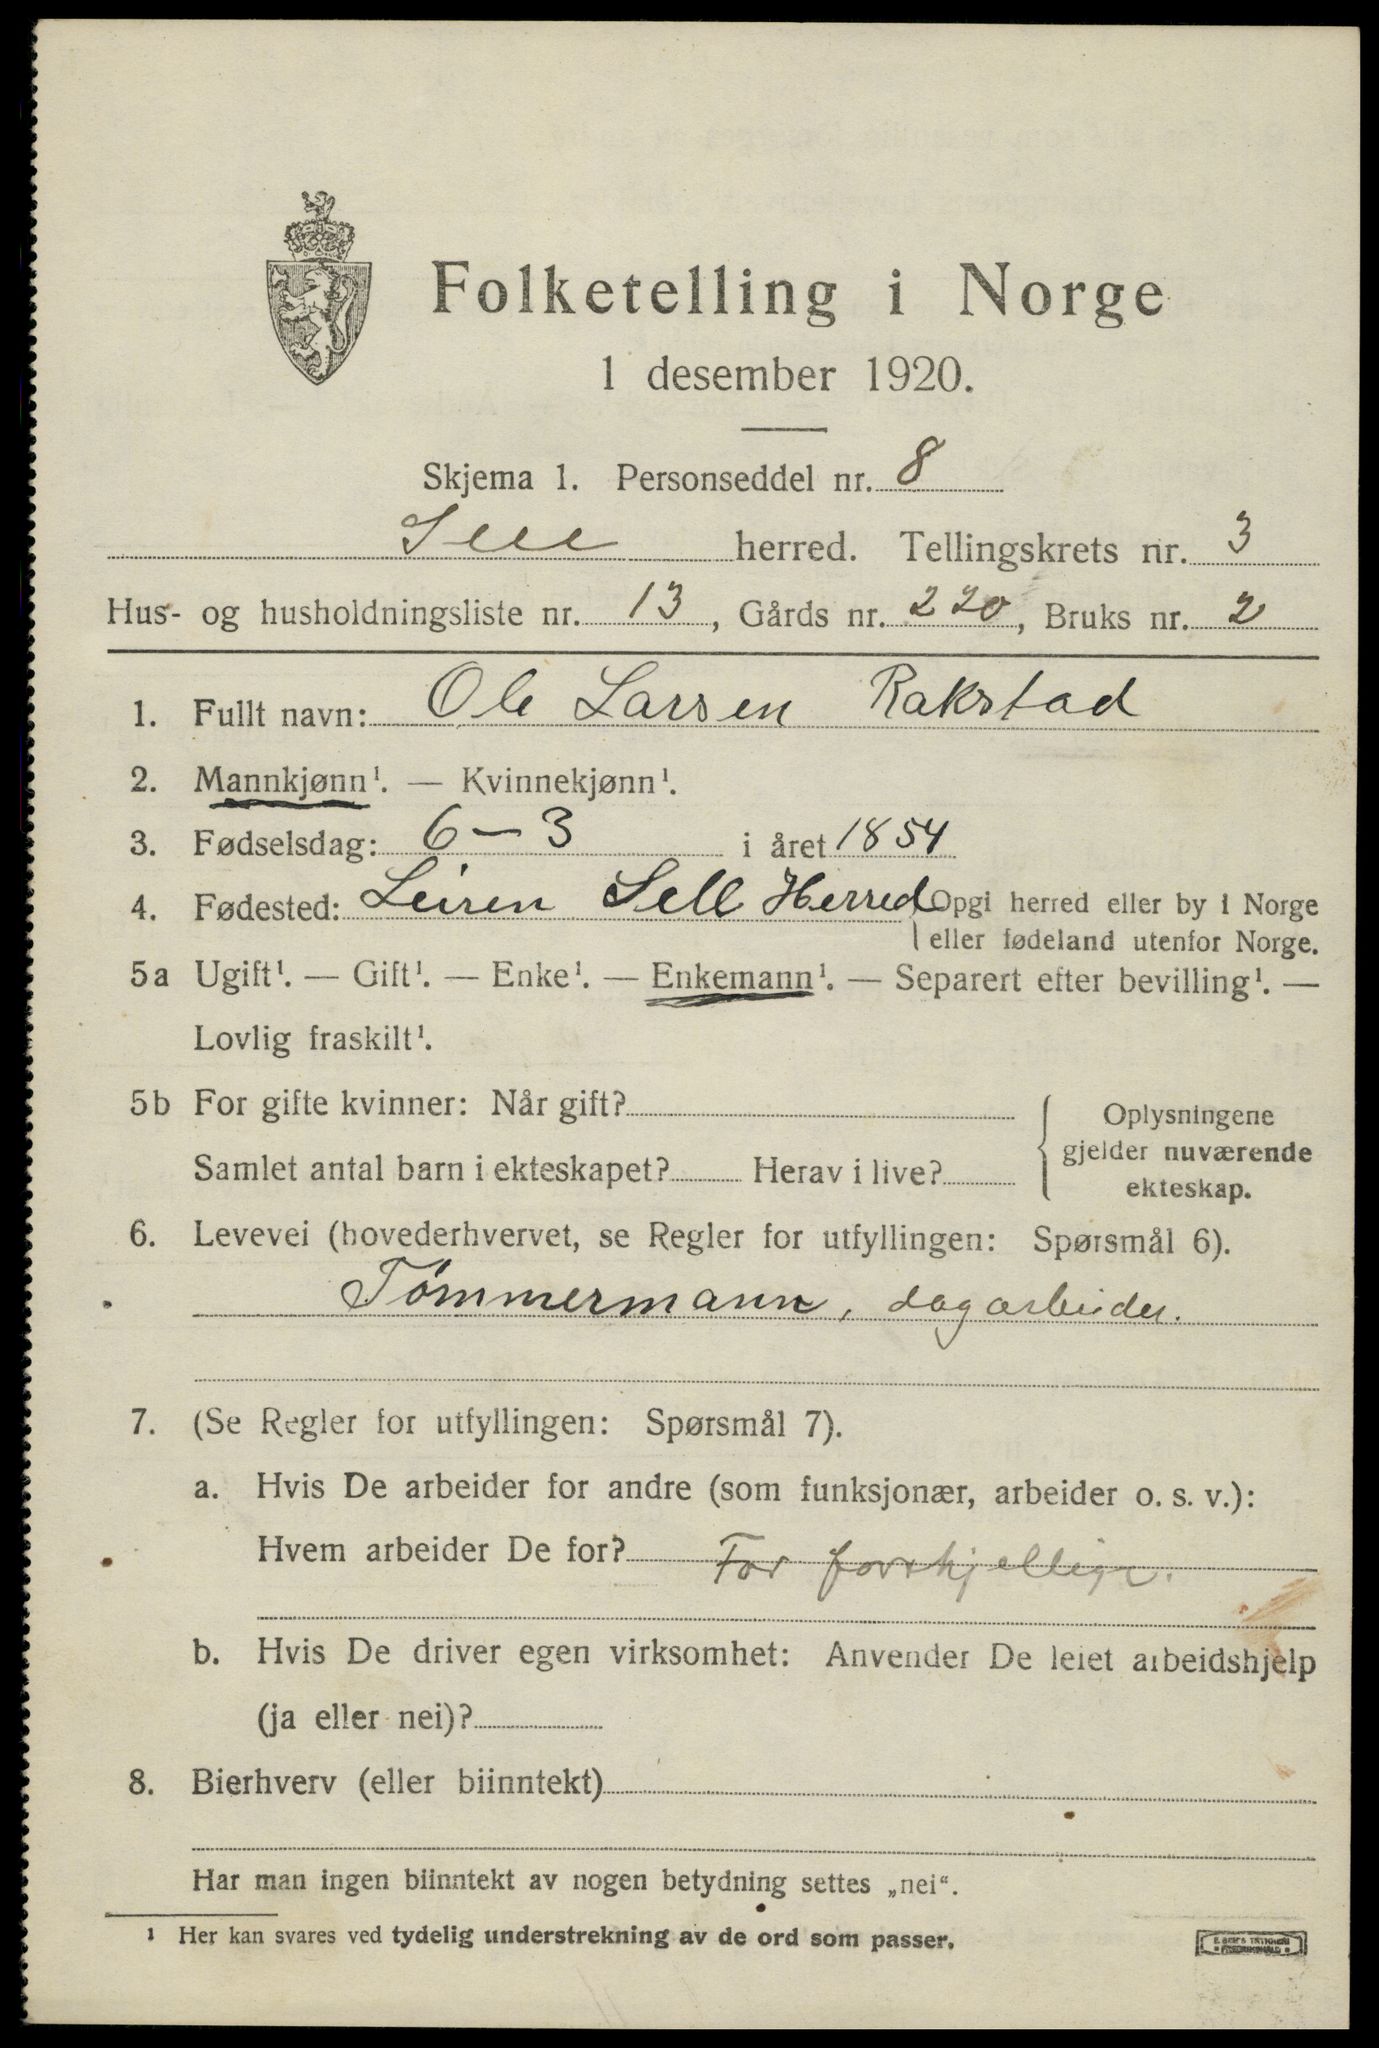 Folketelling i Norge
1 desember 1920.
Skjema 1. Personseddel nr. 8
Sell herred. Tellingskrets nr. 3
Hus- og husholdningsliste nr. 13, Gårds nr. 220, Bruks nr. 2
1. Fullt navn: Ole Larsen Rakstad
2. Mannkjønn¹. — Kvinnekjønn¹.
3. Fødselsdag: 6 – 3 i året 1854
4. Fødested: Leiren Sell Herred Opgi herred eller by i Norge
eller fødeland utenfor Norge.
5a Ugift¹. — Gift¹. — Enke¹. — Enkemann¹. — Separert efter bevilling¹. —
Lovlig fraskilt¹.
5b For gifte kvinner: Når gift?
Samlet antal barn i ekteskapet? Herav i live?
Oplysningene
gjelder nuværende
ekteskap.
6. Levevei (hovederhvervet, se Regler for utfyllingen: Spørsmål 6).
Tömmermann, dagarbeider.
7. (Se Regler for utfyllingen: Spørsmål 7).
a. Hvis De arbeider for andre (som funksjonær, arbeider o. s. v.):
Hvem arbeider De for? For forskjellige.
b. Hvis De driver egen virksomhet: Anvender De leiet arbeidshjelp
(ja eller nei)?
8. Bierhverv (eller biinntekt)
Har man ingen biinntekt av nogen betydning settes „nei“.
¹ Her kan svares ved tydelig understrekning av de ord som passer.